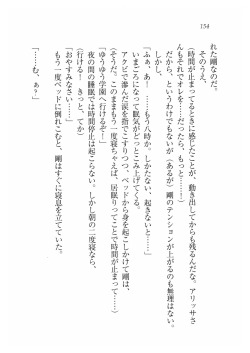 154
れた剛なのだ。
そのうえ、
（時間が止まってるときに感じたことが、動き出してからも残るんだな、アリッサさ
んもそれでオレを……だったら、もっと……！
だから、というわけでもないが（あるが）剛のテンションが上がるのも無理はない。
しかし、
「ふぁ、あ！　……もう八時か。しかたない、起きないと……」
いまごろになって眠気がどっとこみ上げてくる。
アクビで滲んだ涙を指でこすりつつ、ベッドから身を起こしかけて剛は、
（そうだ。このままもう一度寝ちゃえば、居眠りってことで時間が止まって……）
「ゆうゆう学園へ行けるぞ！」
夜の間の睡眠では時間停止は起こらない。しかし朝の二度寝なら、
（行ける！　きっと、てか）
「おやすみなさい……」
もう一度ベッドに倒れこむと、剛はすぐに寝息を立てていた。
「……む、ぁ？」